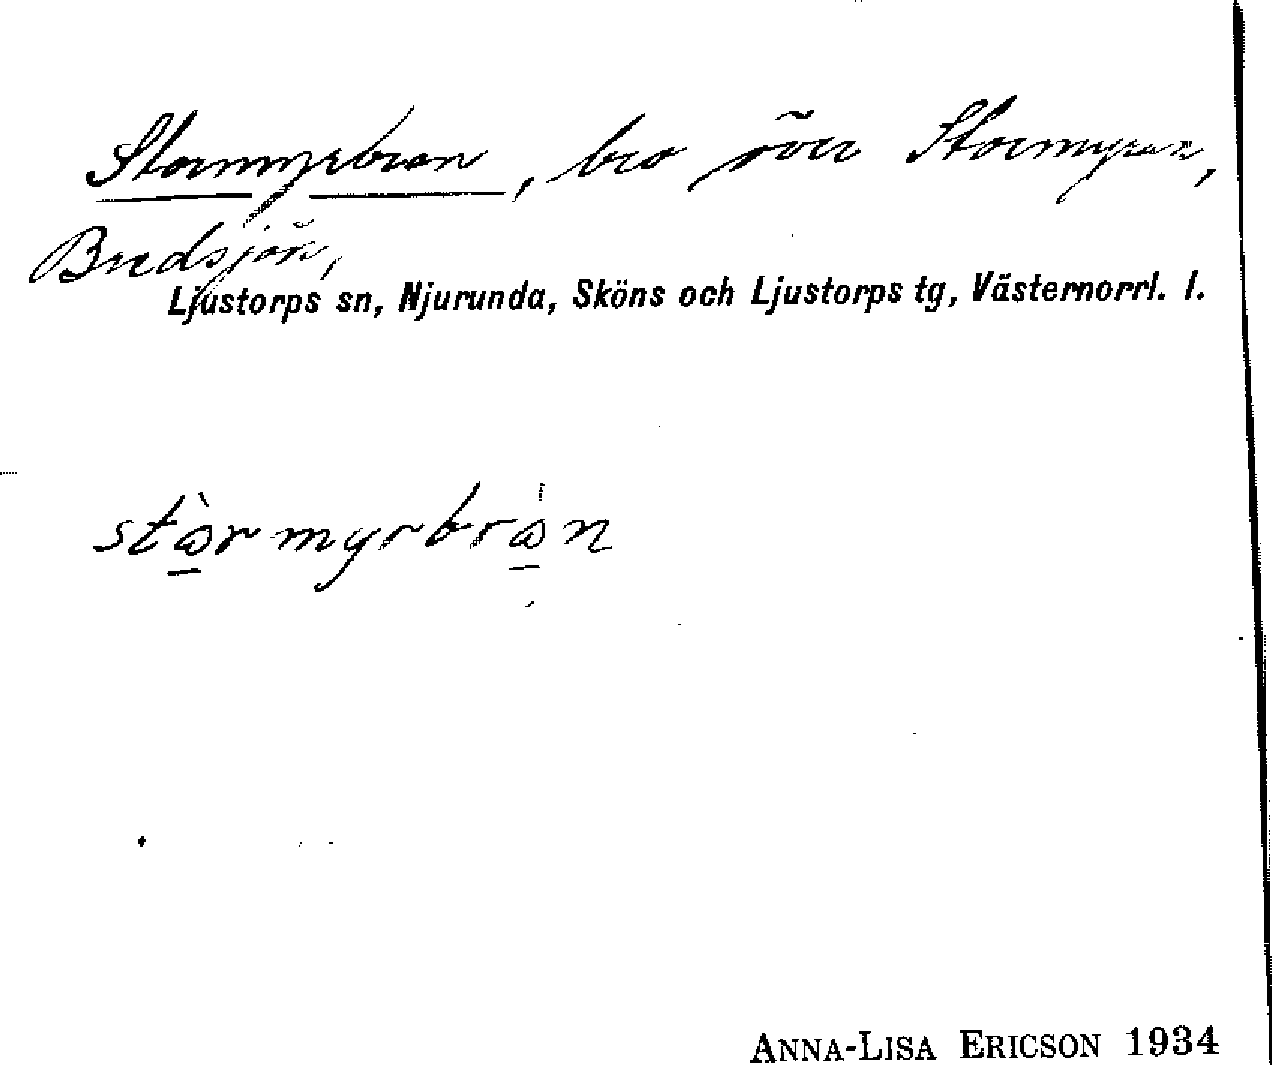 Stormyrbron, bro över Stormyran,
Bredsjön,
Ljustorps sn, Njurunda, Sköns och Ljustorps tg, Västernorrl. l.
stὼrmyrbrὼn
ANNA-LISA ERICSON 1934